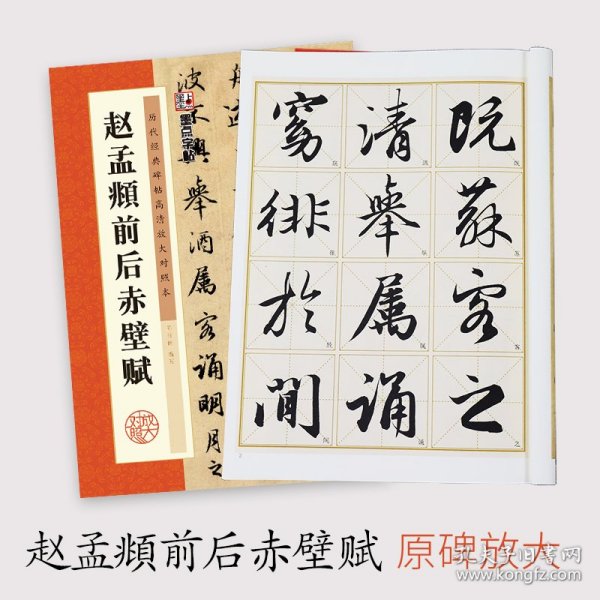 墨点字帖
历代经典碑帖高清放大对照本
赵孟頫前后赤壁赋
放大对照
波不興舉酒属客誦明月之
既蘇客之
清舉属誦
窈徘於間
赵孟頫前后赤壁赋 原碑放大
孔夫子旧书网
www.kongfz.com